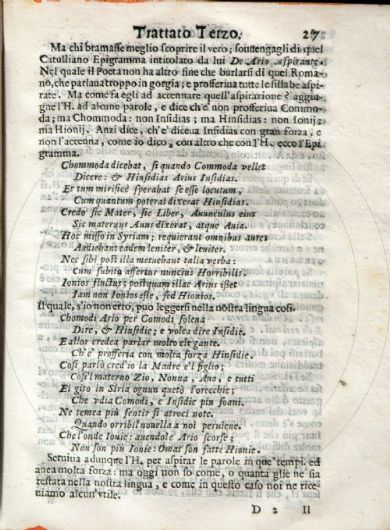 Trattato Terzo. 27
Ma chi bramasse meglio scoprire il vero; souuengagli di quel
Catulliano Epigramma intitolato da lui De Ario Aspirante.
Nel quale il Poeta non ha altro fine che burlarsi di quel Roma-
no, che parlaua troppo in gorgia; e profferiua tutte le sillabe aspi-
rate. Ma come fa egli ad accennare quell'aspirazione? aggiu-
gne l'H. ad alcune parole, e dice ch'è non profferiua Commo-
da; ma Chommoda: non Insidias; ma Hinsidias: non Ionij:
ma Hionij. Anzi dice, ch'e' diceua Insidias con gran forza, e
non l'accenna, come io dico, con altro che con l'H. ecco l'Epi
gramma.
Chommoda dicebat, si quando Commoda vellet
Dicere: & Hinsidias Arius Insidias.
Et tum mirificè sperabat se esse locutum,
Cum quantum poterat dixerat Hinsidias.
Credo sic Mater, sic Liber, Auunculus eius
Sic maternus Auus dixerat, atque Auia.
Hoc misso in Syriam; requierant omnibus aures
Audiebant eadem leniter, & leuiter.
Nec sibi post illa metuebant talia verba:
Cum subitò affertur nuncius Horribilis.
Ionios fluctus; postquam illac Arius isset
Iam non Ionios esse, sed Hionios.
Il quale, s'io non erro, può leggersi nella nostra lingua cosi.
Chomodi Ario per Comodi solena
Dire, & Hinsidie; e volea dire Insidie.
E allor credea parlar molto elegante.
Ch'e' profferia con molta forza Hinsidie.
Così parlò cred'io la Madre e'l figlio;
Così'l materno Zio, Nonna, Auo, e tutti
Ei gito in Siria ognun quetò l'orecchie;
Che vdia Comodi, e Insidie piu soaui.
Ne temea più sentir si atroci note.
Quando orribil nouella a noi peruiene.
Che l'onde Ionie: auendole Ario scorse;
Non son più Ionie: Omai son fatte Hionie.
Seruiua adunque l'H. per aspirare le parole in que' tempi. ed
auea molta forza: ma oggi non so come, o quanta glie ne sia
restata nella nostra lingua, e come in questo caso noi ne rice-
uiamo alcun' vtile.
D 2 Il